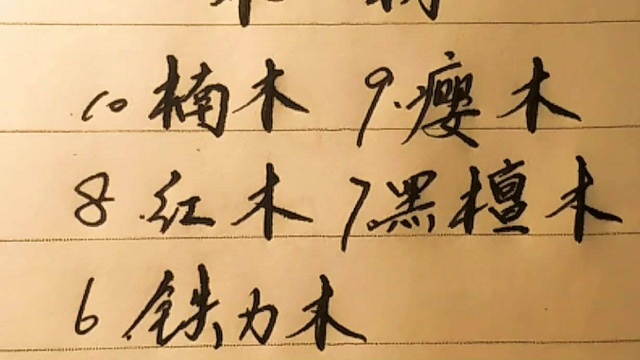 10 楠木 9.瘿木
8.红木 7.黑檀木
6.铁力木